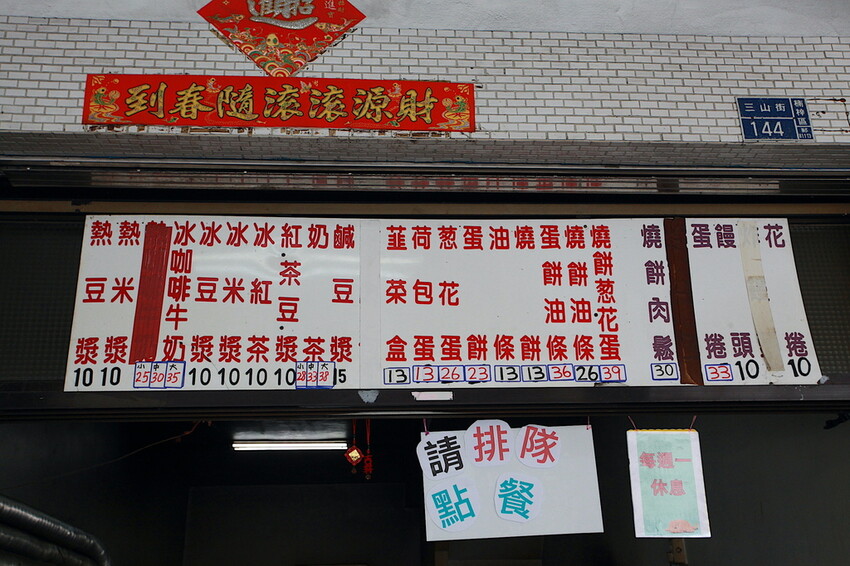 財源滾滾隨春到
三山街
144
楠梓區
熱豆漿 10
熱米漿 10
冰咖啡牛奶 小25 中30 大35
冰豆漿 10
冰米漿 10
冰紅茶 10
紅茶·豆漿 10
奶茶 小28 中33 大38
鹹豆漿 15
韮菜盒 13
荷包蛋 13
葱花蛋 26
蛋餅 23
油條 13
燒餅 13
蛋餅油條 36
燒餅油條 26
燒餅葱花蛋 39
燒餅肉鬆 30
蛋捲 33
饅頭 10
花捲 10
請排隊
點餐
每週一
休息